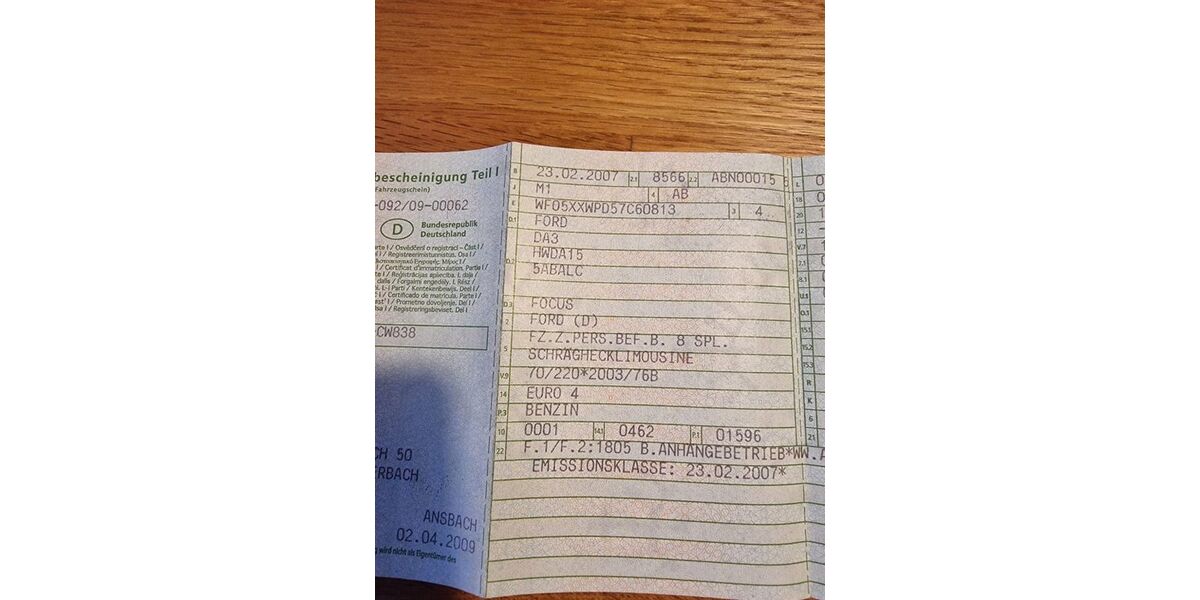 bescheinigung Teil I
Fahrzeugschein)
-092/09-00062
D
Bundesrepublik
Deutschland
arte I / Osvědčení o registraci – Část I /
I / Registreerimistunnistus. Osa I /
/ Certificat d'immatriculation. Partie I /
/ Reģistrācijas apliecība. I. daļa /
dalis / Forgalmi engedély. I. Rész /
I. L-I Parti / Kentekenbewijs. Deel I /
/ Certificado de matrícula. Parte I /
ast' / Prometno dovoljenje. Del I /
sa I / Registreringsbeviset. Del I
CW838
CH 50
ERBACH
ANSBACH
02.04.2009
g wird nicht als Eigentümer des
B 23.02.2007 2.1 8566 2.2 ABN00015
J M1 4 AB
E WF05XXWPD57C60813 3 4
D.1 FORD
DA3
D.2 HWDA15
5ABALC
D.3 FOCUS
2 FORD (D)
5 FZ.Z.PERS.BEF.B. 8 SPL.
SCHRÄGHECKLIMOUSINE
V.9 70/220*2003/76B
14 EURO 4
P.3 BENZIN
10 0001 14.1 0462 P.1 01596
22 F.1/F.2:1805 B.ANHÄNGEBETRIEB*WW.A
EMISSIONSKLASSE: 23.02.2007*
L 0
18 0
20 1
12 -
V.7 1
7.1 0
8.1
U.1
O.1
15.1
15.2
15.3
R
K
6
21